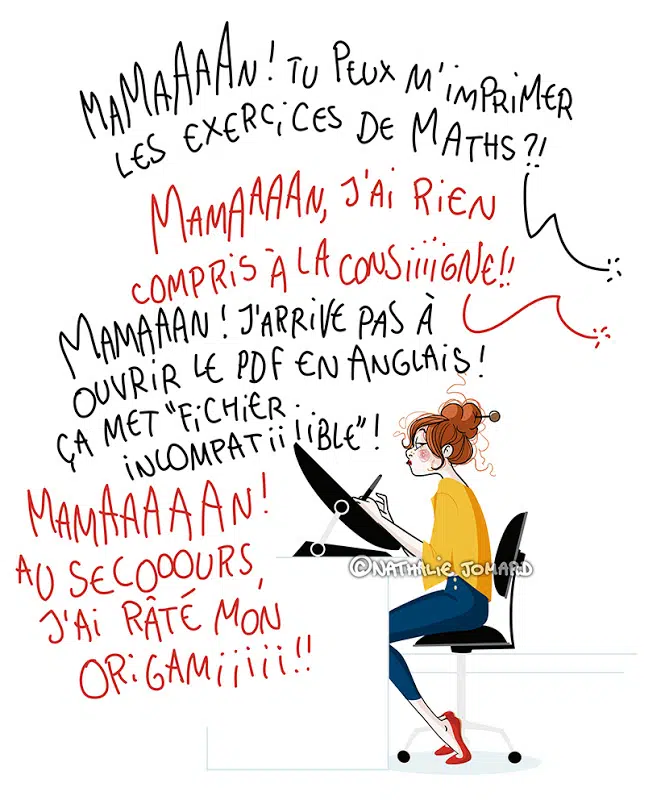 MAMAAAAN! TU PEUX M'IMPRIMER
LES EXERCICES DE MATHS?!
MAMAAAAN, J'AI RIEN
COMPRIS À LA CONSiiiiGNE!!
MAMAAAN! J'ARRIVE PAS À
OUVRIR LE PDF EN ANGLAIS!
ÇA MET "FICHIER
INCOMPATiiiiIBLE"!
MAMAAAAAAN!
AU SECOOOURS,
J'AI RÂTÉ MON
ORIGAMiiiii!!
©NATHALIE JOMARD